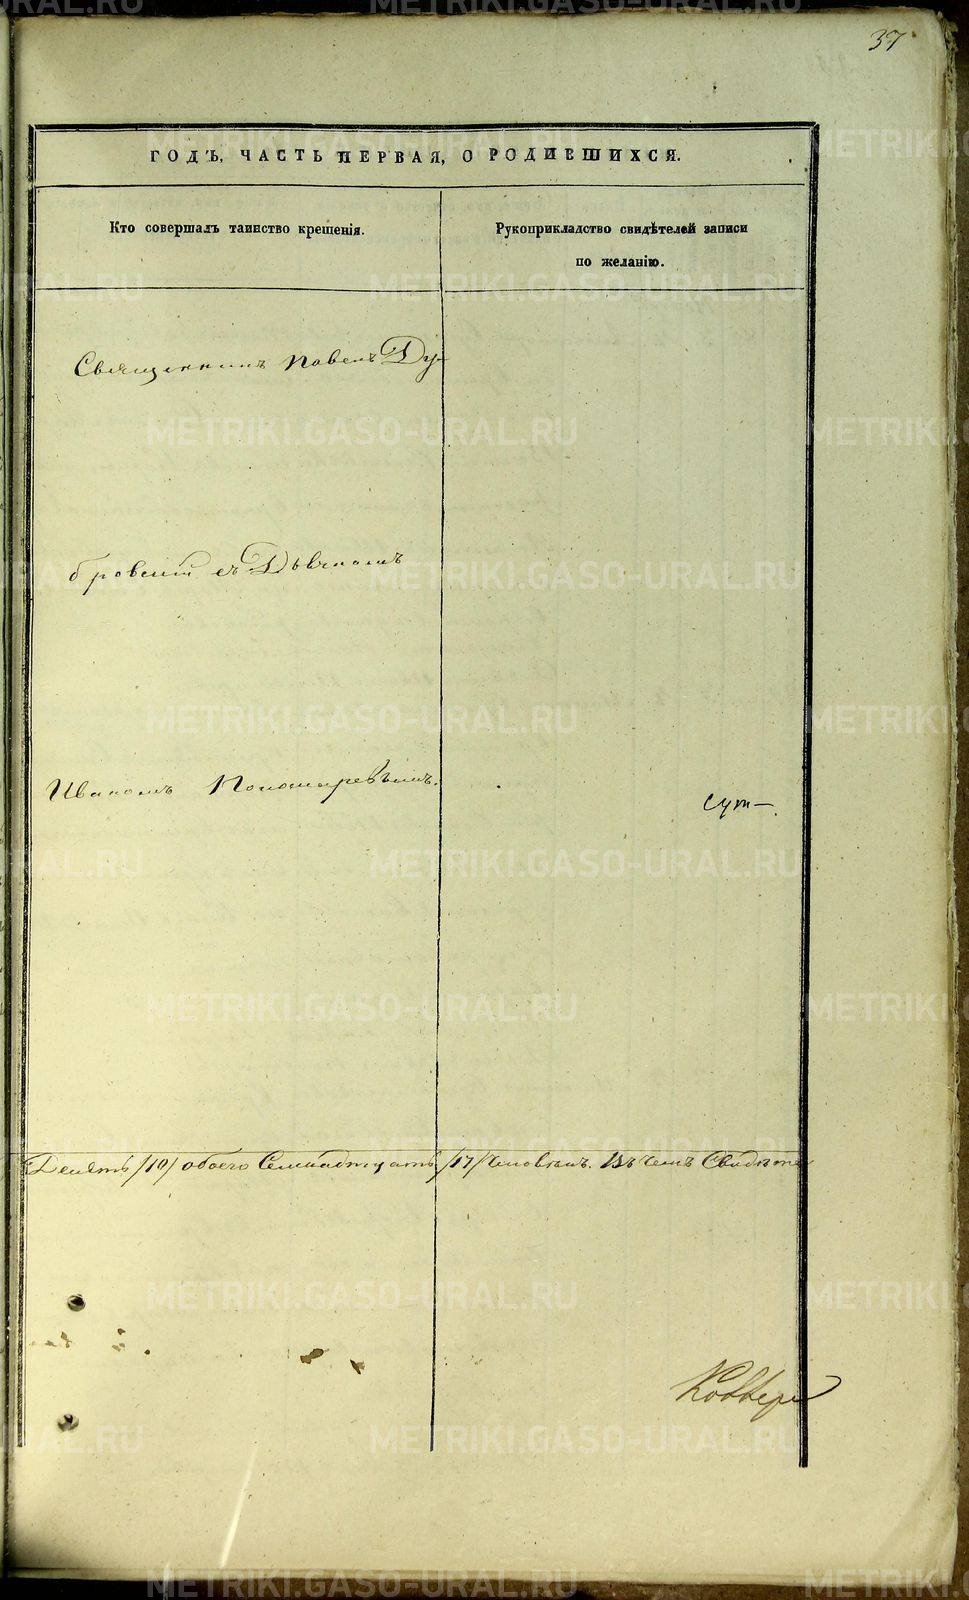 37
ГОДЪ, ЧАСТЬ ПЕРВАЯ, О РОДИВШИХСЯ.
Кто совершалъ таинство крещенія.
Рукоприкладство свидѣтелей записи
по желанію.
Священникъ Павелъ Ду-
бровскій съ Дьячкомъ
Иваномъ Пономаревымъ.
/10/ обоего Семнадцать /17/ человѣкъ. Въ чемъ
METRIKI.GASO-URAL.RU